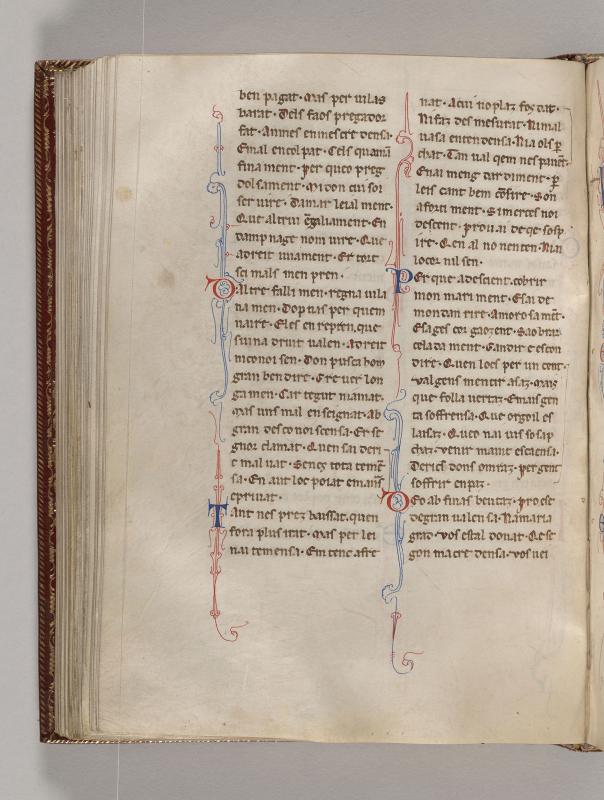 ben pagat · Mas per uilas
barat · Dels faos pregador
fat · Annes en mescre densa ·
E mal encolpat · Cels qu ama
fina ment · Per queo preg
dolsament · Midon cui soi
ser uire · Damar leial ment ·
Que altrui ment · En
damp nage nom uire · Que
adreit uiuament · Er tort
sei mals men pren ·
Daltre falli men · regna uila
na men · Dop uas per quem
uaire · Eles en repren, que
sui na druit ualen · Adreit
mconoi sen · Don pusca hom
gran ben dire · Ere uer lon
ga men · Car tegut mamat ·
Mas uns mal en seignat · Ab
gran desconoiscensa · Er se
gnor clamat · Quen sai deri
e mal uat · Senes tota teme
sa · En aut loc poiat em
epriuat ·
Tant nes prez baissat, quen
fora plus irat · Mas per lei
nai temensa · Em tenc afre
nat · Acui no plaz foudat ·
Ni faz des mesurat · Ni mal
uasa entendensa · Nia ols p
chat · Tam ual qem nes
Enai meng dar diment · p
leis cant bem cosire · Son
aforti ment · Si merces noi
descent · prou ai de qe sosp
ire · Qen al no nenten · Nin
locor nil sen ·
Per que adescient, cobrir
mon mari ment · Esai de
mon dan rire · Amoro sa met ·
Esages coi gaozent · Saobrai
celada ment · Candir e escon
dire · Quen locs per un cent ·
ual gens mentir asaz · Mais
que folla uertaz · Emais gen
ta soffrensa · Que orgoil es
laisaz · Queo nai uis so sap
chaz · uenir maint escaensa ·
De rics dons omraz · per gent
soffrir en paz ·
Deo ab finas beutaz · pro est
de gran ualensa · Na maria
grao · vos estal donat · Qe se
gon ma cre densa · vos uei